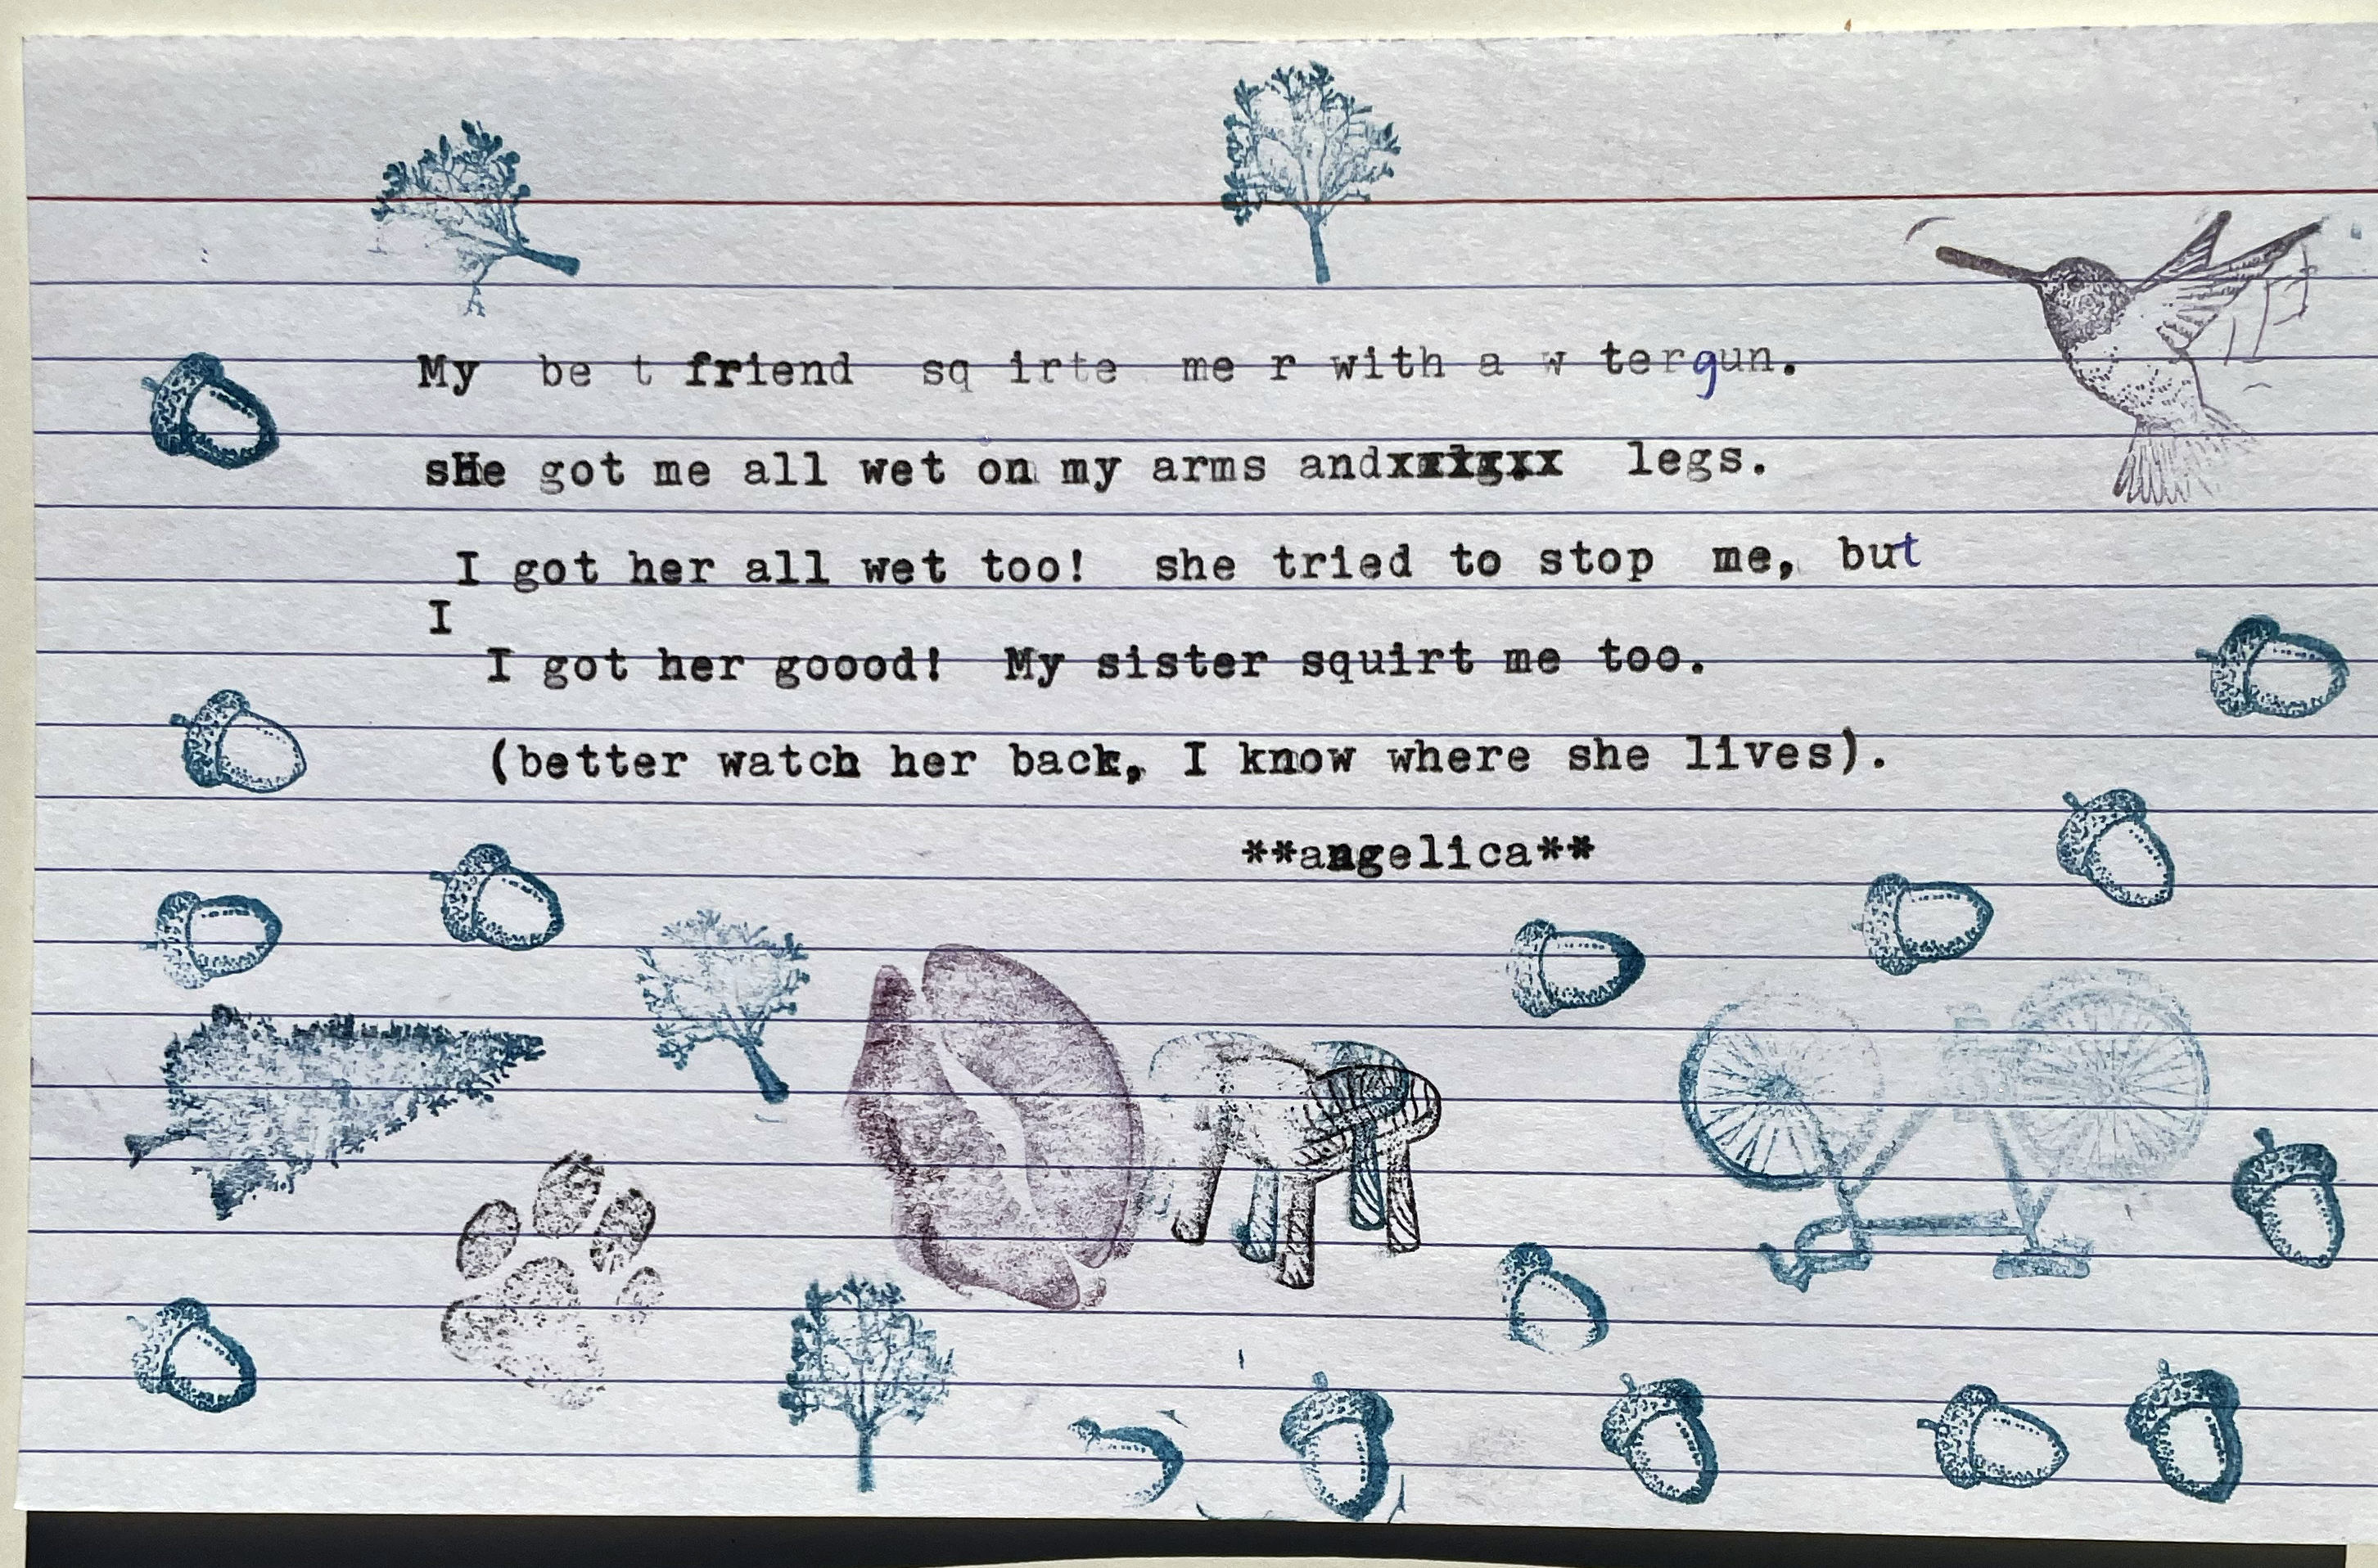 My be t friend sq irte me r with a w tergun.
sHe got me all wet on my arms andxxxxxx legs.
I got her all wet too! she tried to stop me, but
I
I got her goood! My sister squirt me too.
(better watch her back, I know where she lives).
**angelica**